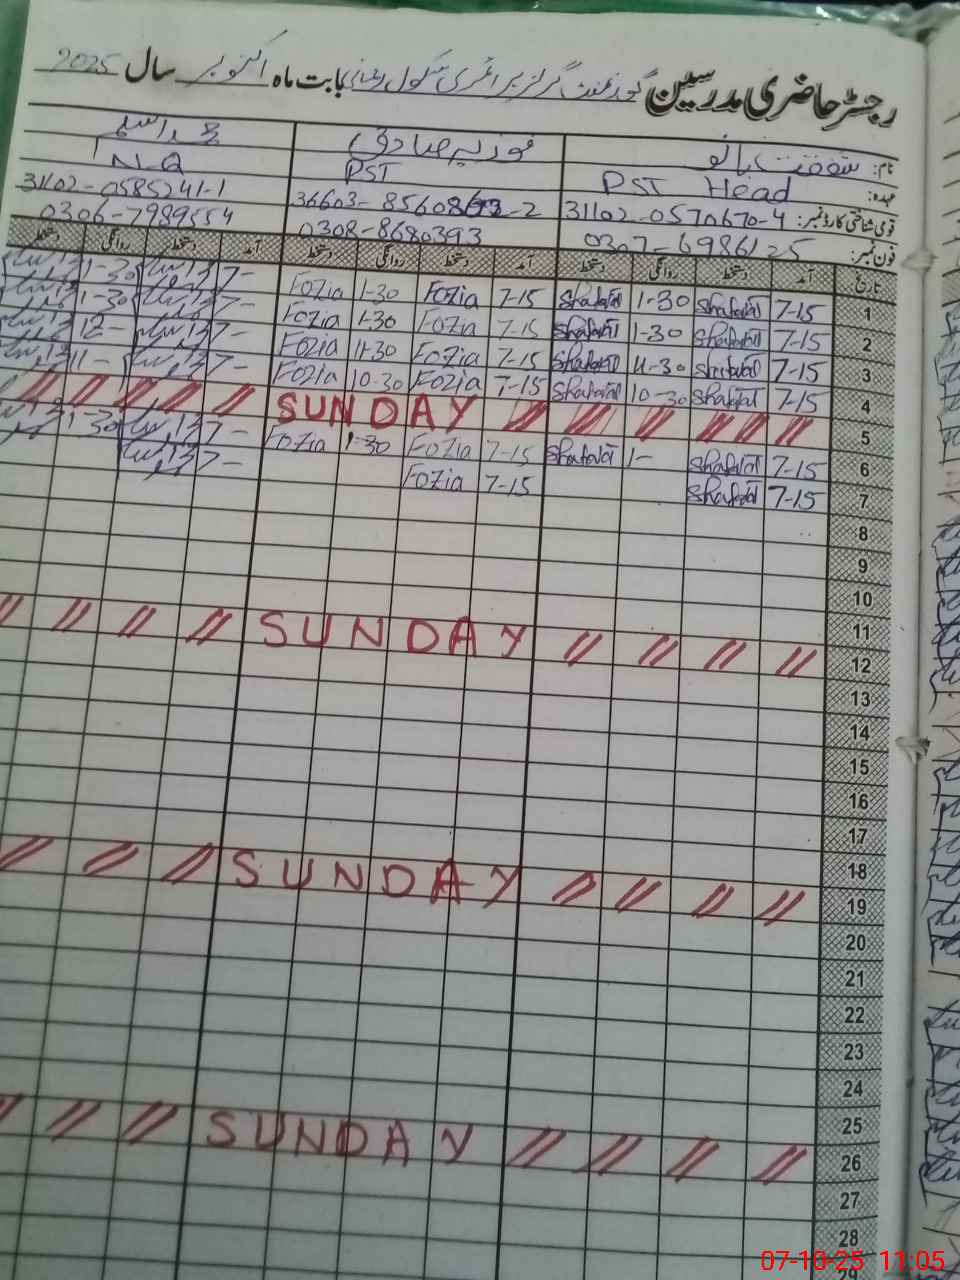 رجسٹر حاضری مدرسین گورنمنٹ گرلز پرائمری سکول بابت ماہ اکتوبر سال 2025
نام: شفقت بانو فوزیہ صادق محمد اسلم
عہدہ: PST Head PST N.Q
قومی شناختی کارڈ نمبر: 31102-0570670-4 31102-0585241-1
فون نمبر: 0307-6986125 0308-8680393 0306-7989554
تاریخ آمد دستخط روانگی دستخط آمد دستخط روانگی دستخط آمد دستخط روانگی دستخط
1 7-15 Shafqat 1-30 Shafqat 7-15 Fozia 1-30 Fozia 7- 1-30
2 7-15 Shafqat 1-30 Shafqat 7-15 Fozia 1-30 Fozia 7- 1-30
3 7-15 Shafqat 11-30 Shafqat 7-15 Fozia 11-30 Fozia 7- 12-
4 7-15 Shafqat 10-30 Shafqat 7-15 Fozia 10-30 Fozia 7- 11-
5 SUNDAY
6 7-15 Shafqat 1- Shafqat 7-15 Fozia 1-30 Fozia 7- 1-30
7 7-15 Shafqat 7-15 Fozia 7-
8
9
10
11
12 SUNDAY
13
14
15
16
17
18
19 SUNDAY
20
21
22
23
24
25
26 SUNDAY
27
28
29
07-10-25 11:05